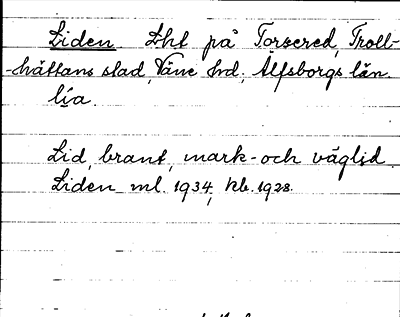 Liden Lht på Torsered, Troll-
-hättans stad, Väne hd; Älfsborgs län
lía.
Lid, brant, mark- och väglid.
Liden ml. 1934, kb. 1928.